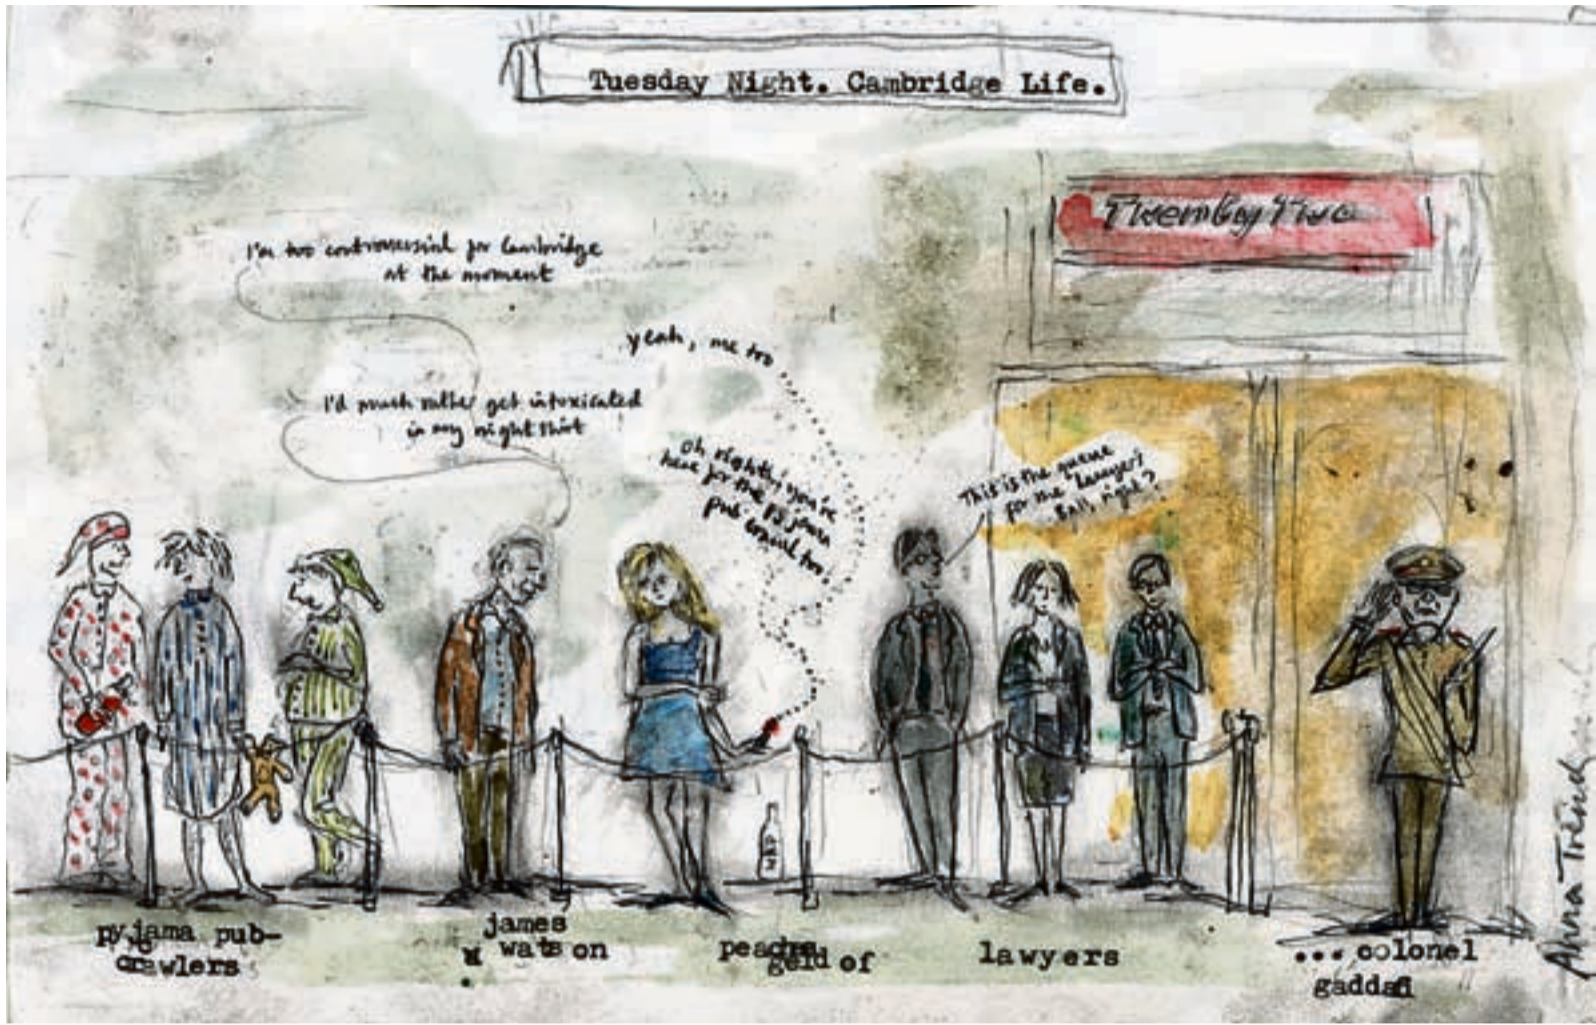 Tuesday Night. Cambridge Life.
Twenty Two
I'm too controversial for Cambridge
at the moment
yeah, me too
I'd much rather get intoxicated
in my night shirt
Oh right, you're
here for the pub crawl too
This is the queue
for the Lawyers'
Ball, right?
pyjama pub-
crawlers
james
watson
peaches
geldof
lawyers
...colonel
gaddafi
Anna